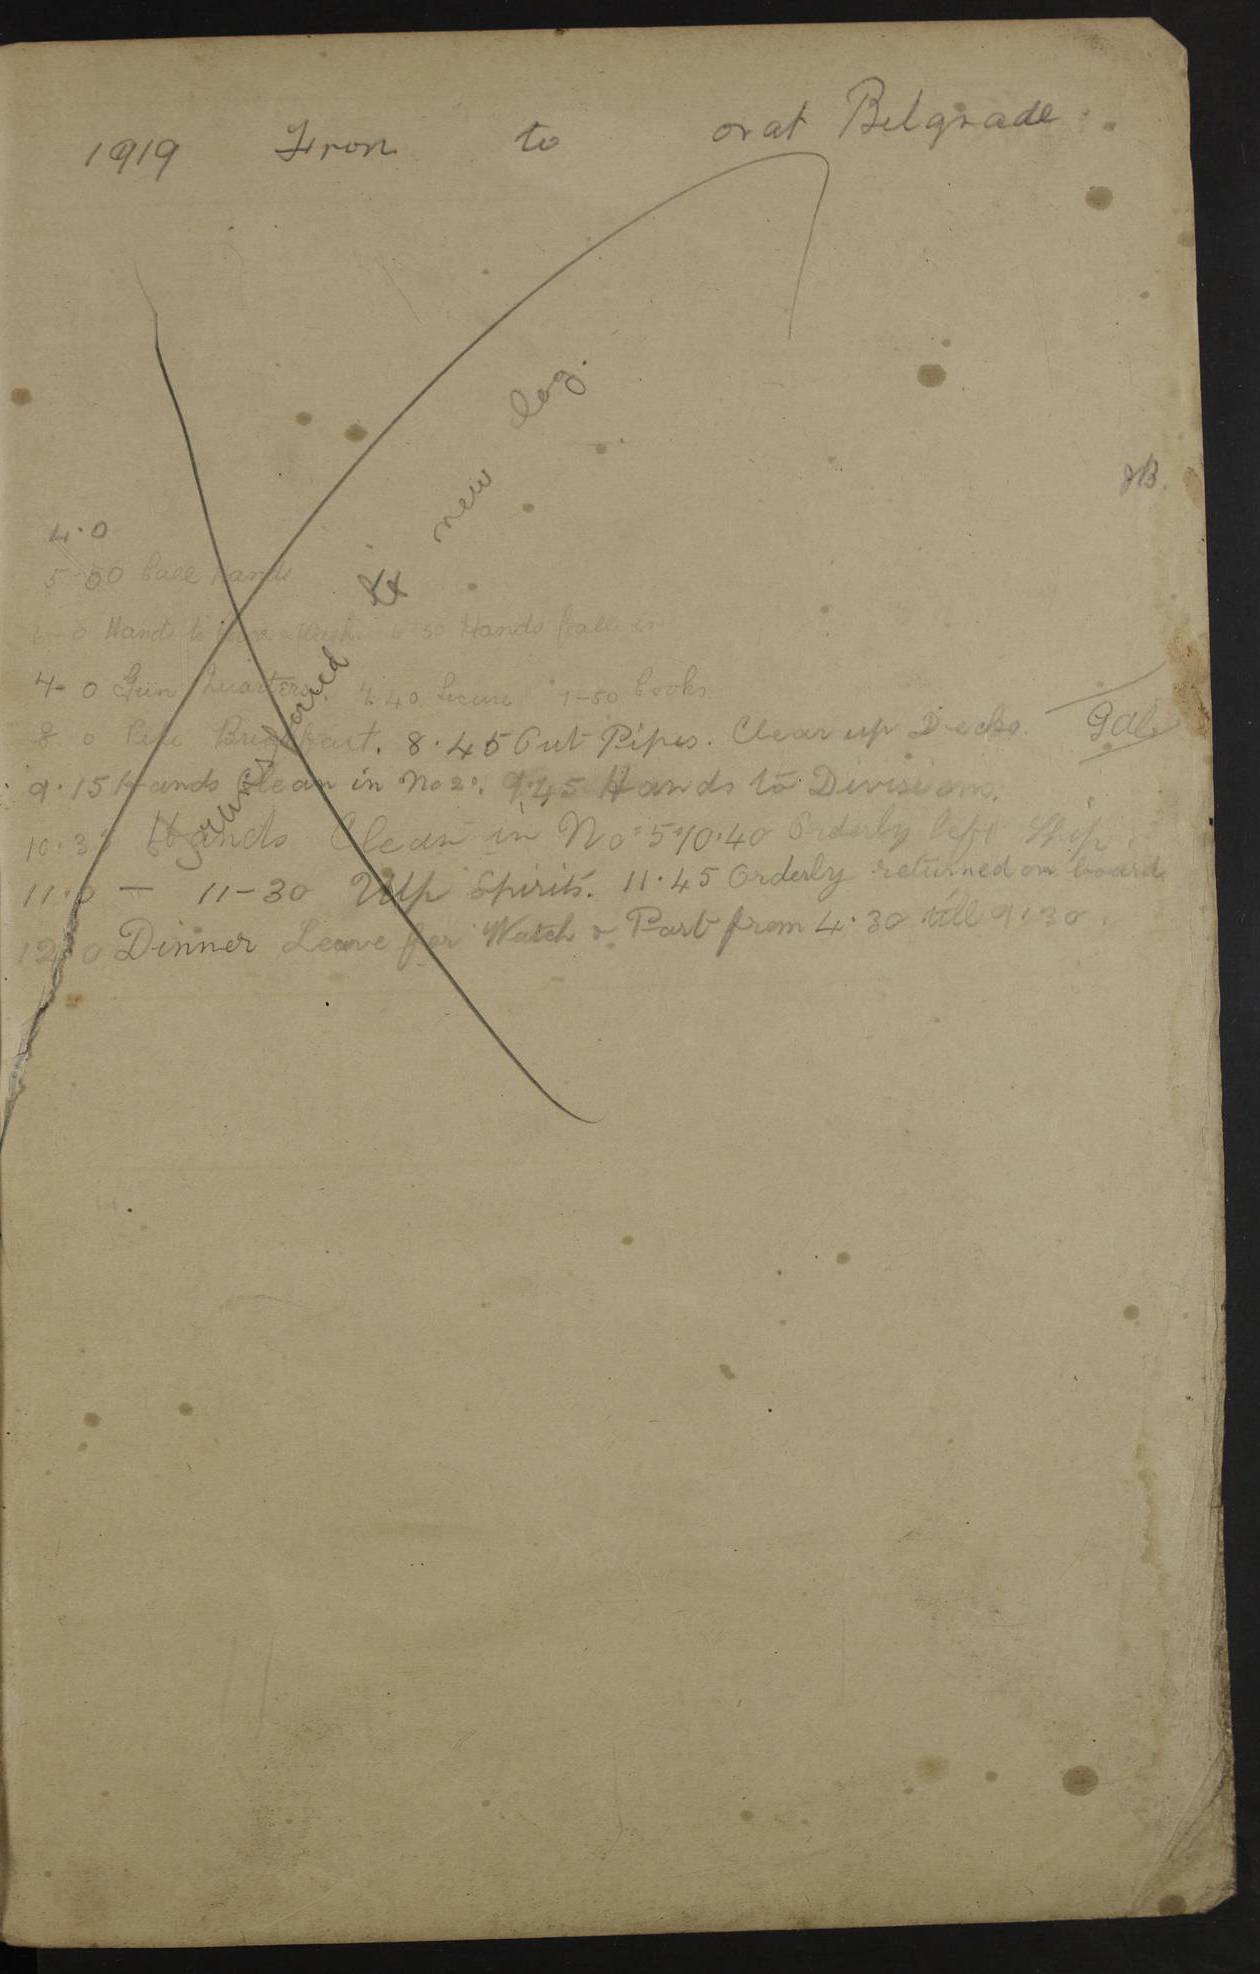 1919 From to or at Belgrade
JB.
4.0
5-50 Call hands
Hands to Wash. 6-50 Hands fall in
7-0 Gun Quarters. 7.40 Secure 7-50 Cooks
8.0 Pipe Breakfast. 8.45 Out Pipes. Clear up Decks.
9.15 Hands Clean in No 2s. 9.45 Hands to Divisions.
10.35 Hands Clean in No 5s 10.40 Orderly left Ship.
11.0 — 11-30 Up Spirits. 11.45 Orderly returned on board
12.0 Dinner Leave for Watch & Part from 4.30 till 9.30.
to new log.